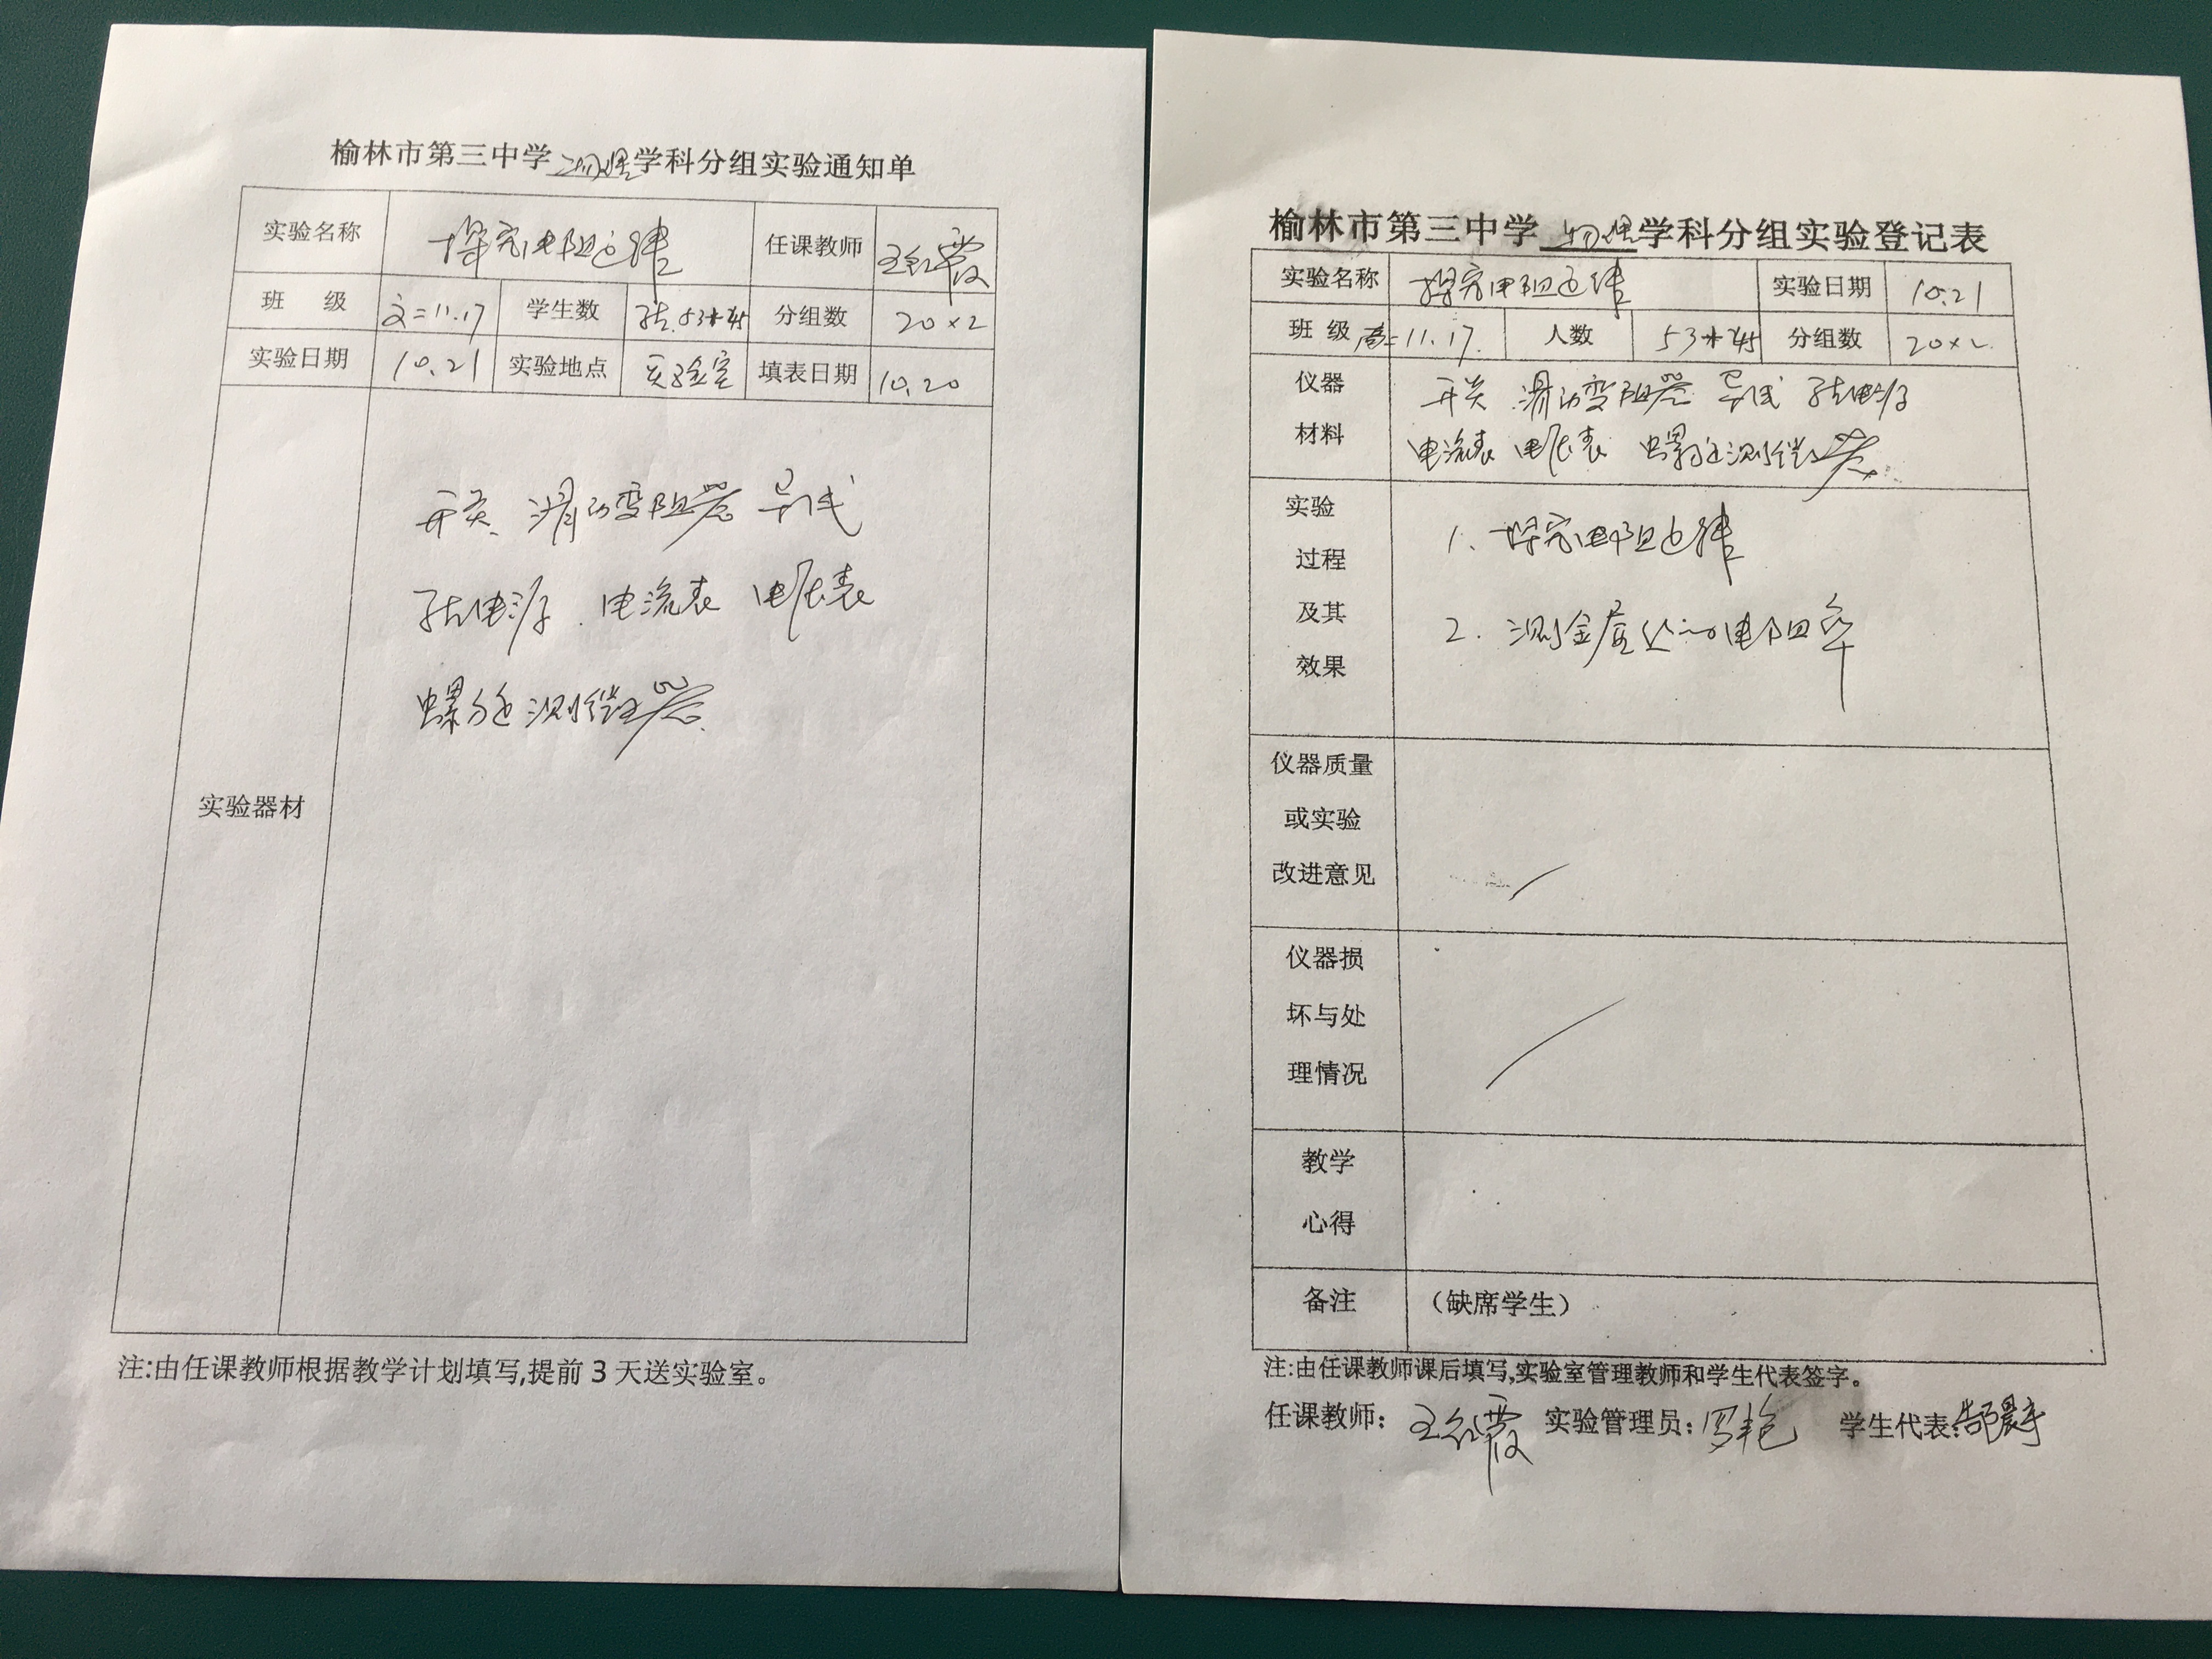 榆林市第三中学 物理 学科分组实验通知单
实验名称 探究电阻定律 任课教师 王红霞
班 级 高二11.17 学生数 53+45 分组数 20×2
实验日期 10.21 实验地点 实验室 填表日期 10.20
实验器材
开关、滑动变阻器 导线
电源、电流表 电压表
螺旋测微器
注:由任课教师根据教学计划填写,提前3天送实验室。
榆林市第三中学 物理 学科分组实验登记表
实验名称 探究电阻定律 实验日期 10.21
班 级 高二11.17. 人数 53+45 分组数 20×2
仪器材料
开关 滑动变阻器 导线 电源
电流表 电压表 螺旋测微器
实验过程及其效果
1、探究电阻定律
2.测金属丝的电阻率
仪器质量或实验改进意见
仪器损坏与处理情况
教学心得
备注 （缺席学生）
注:由任课教师课后填写,实验室管理教师和学生代表签字。
任课教师： 王红霞 实验管理员： 罗艳 学生代表: